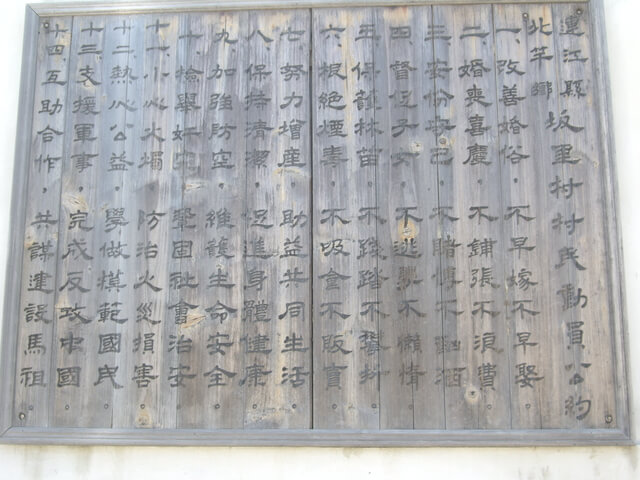 連江縣
北竿鄉
坂里村村民動員公約
一、改善婚俗，不早嫁不早娶
二、婚喪喜慶，不鋪張不浪費
三、安份守己，不賭博不酗酒
四、督促子女，不逃學不懶惰
五、保護林苗，不踐踏不攀折
六、根絕煙毒，不吸食不販賣
七、努力增產，助益共同生活
八、保持清潔，促進身體健康
九、加強防空，維護生命安全
十、檢舉奸宄，鞏固社會治安
十一、小心火燭，防治火災損害
十二、熱心公益，學做模範國民
十三、支援軍事，完成反攻中國
十四、互助合作，共謀建設馬祖